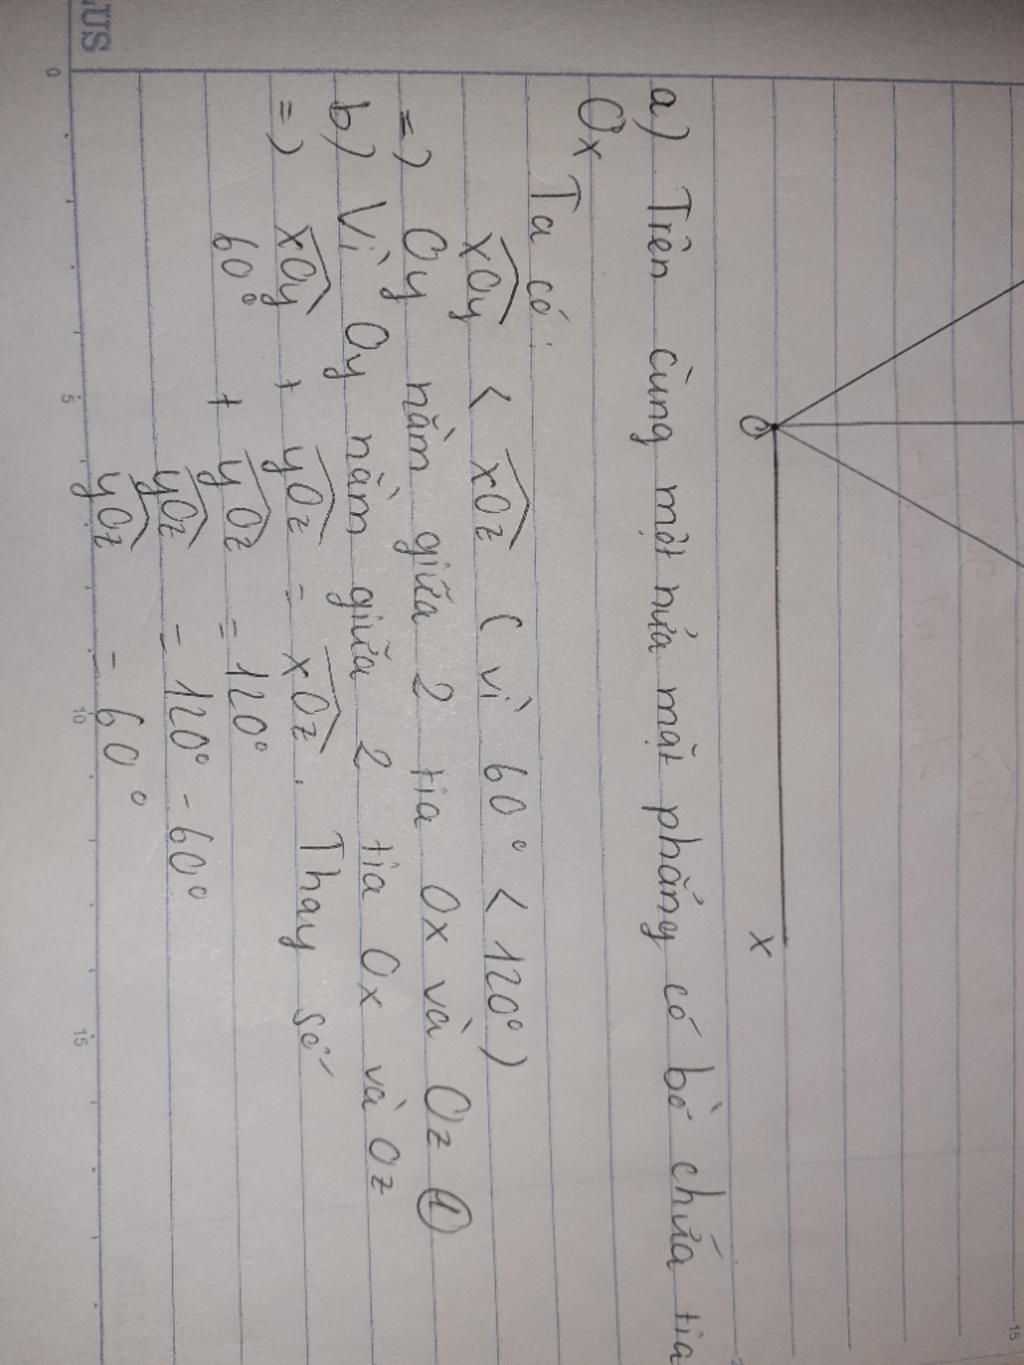 O
x
a) Trên cùng một nửa mặt phẳng có bờ chứa tia
Ox
Ta có:
xOy < xOz ( vì 60° < 120° )
=) Oy nằm giữa 2 tia Ox và Oz ①
b) Vì Oy nằm giữa 2 tia Ox và Oz
=) xOy + yOz = xOz. Thay số
60° + yOz = 120°
yOz = 120° - 60°
yOz = 60°
0 5 10 15
15